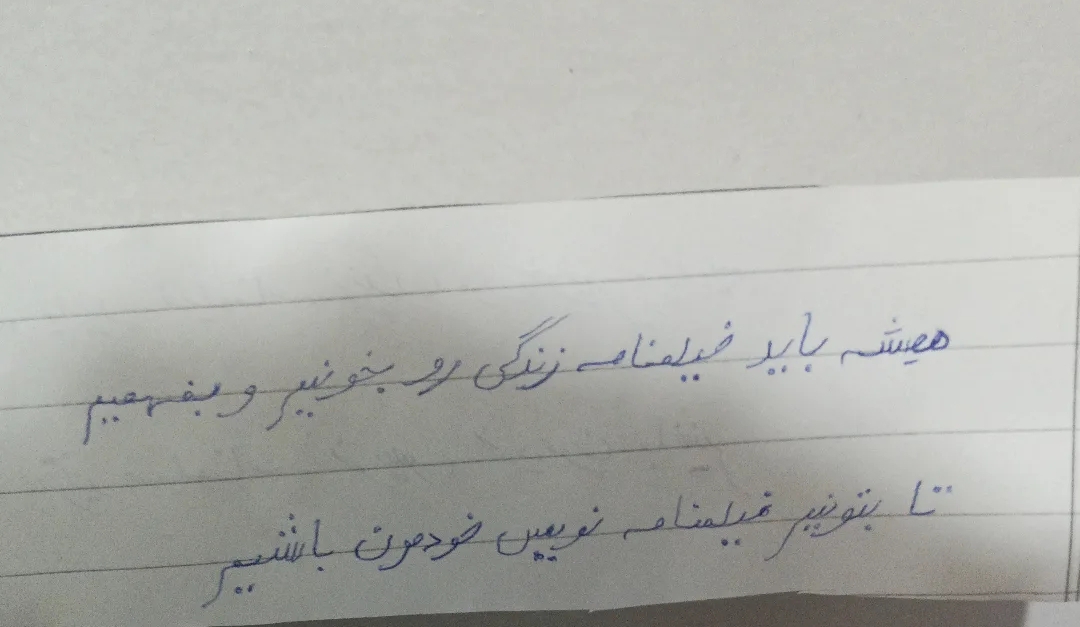 همیشه باید فیلمنامه زندگی رو بخونیم و بفهمیم
تا بتونیم فیلمنامه نویس خودمون باشیم